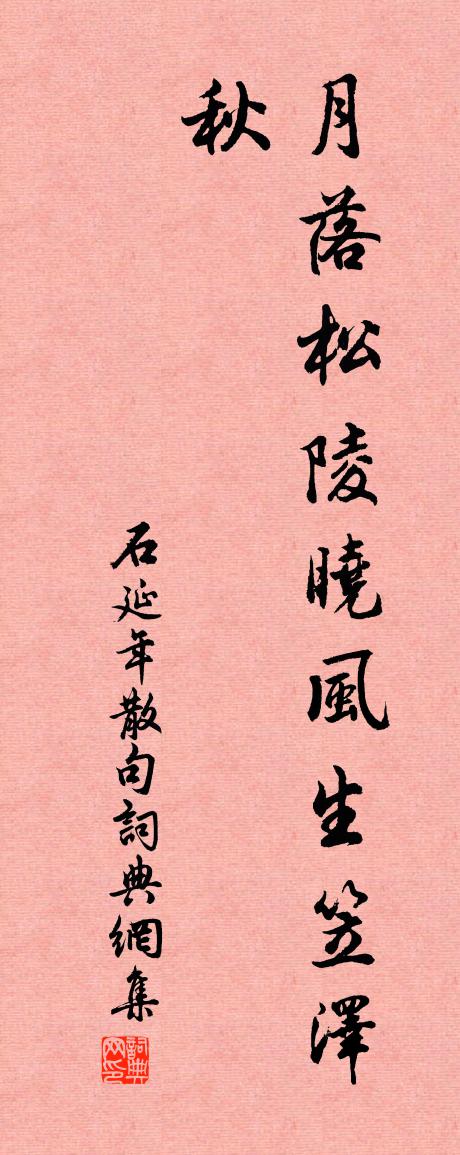 月落松陵曉風生笠澤
秋
石延年散句詞典網集
詞典网印